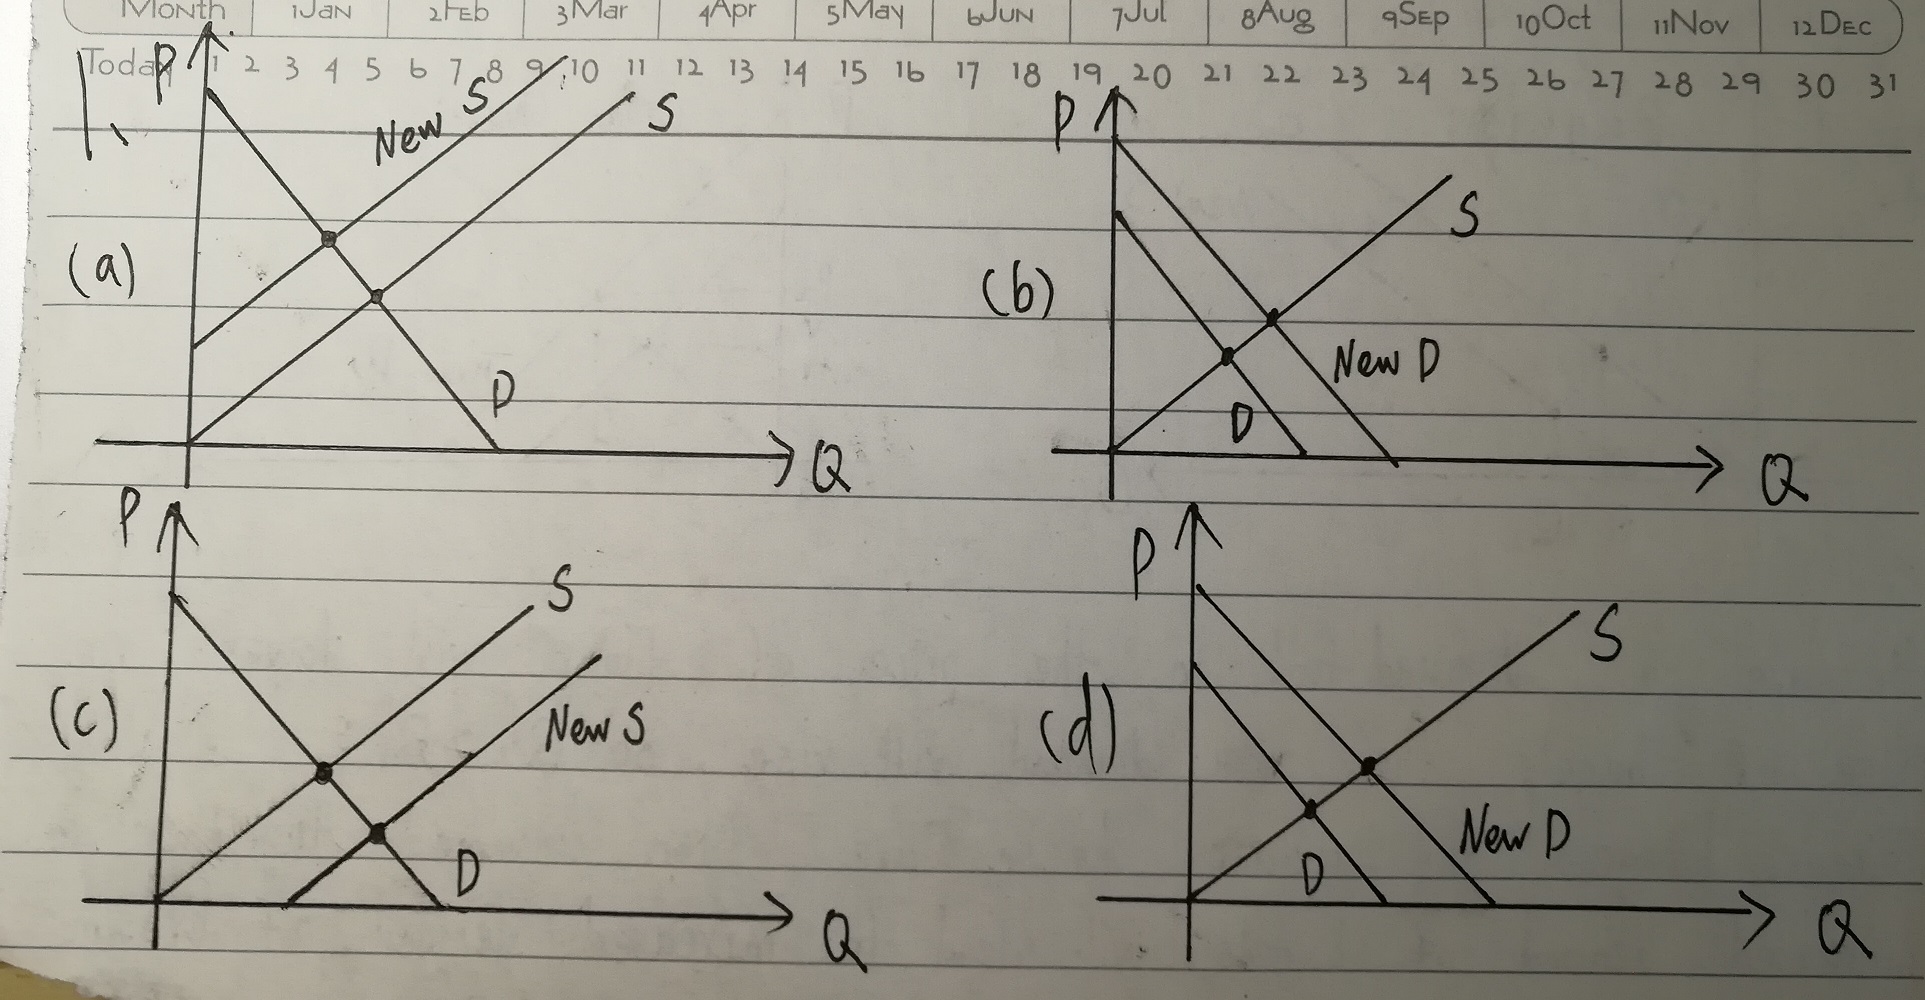 Month 1Jan 2Feb 3Mar 4Apr 5May 6Jun 7Jul 8Aug 9Sep 10Oct 11Nov 12Dec
Today 1 2 3 4 5 6 7 8 9 10 11 12 13 14 15 16 17 18 19 20 21 22 23 24 25 26 27 28 29 30 31
1、
(a)
P
New S
S
D
Q
(b)
P
S
New D
D
Q
(c)
P
S
New S
D
Q
(d)
P
S
New D
D
Q